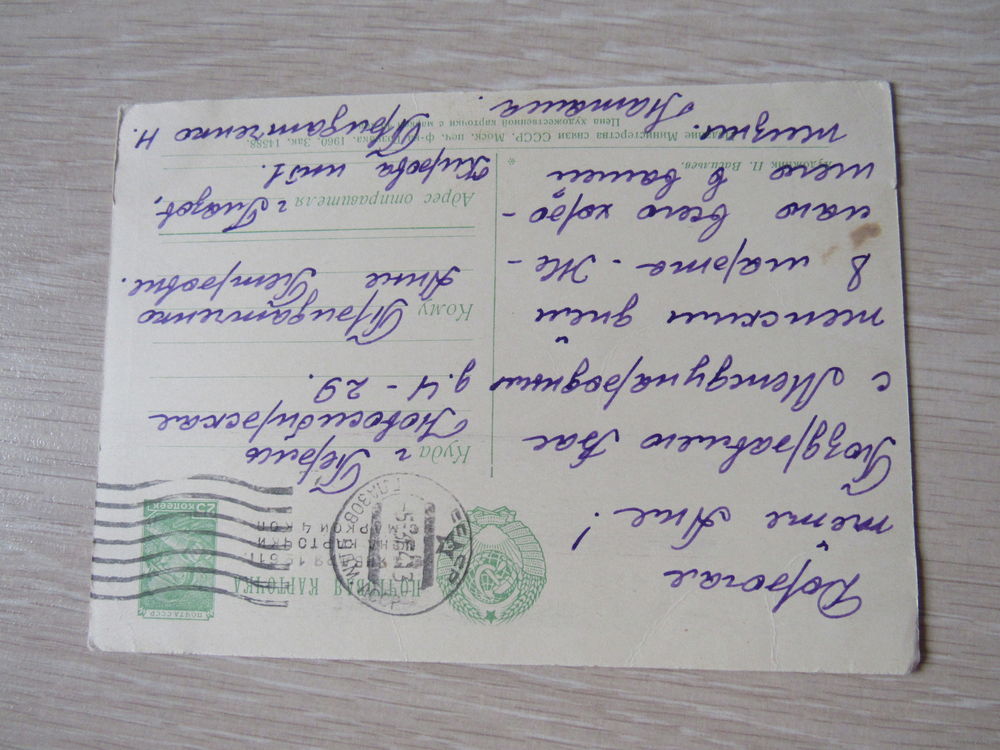 ПОЧТОВАЯ КАРТОЧКА
ПОЧТА СССР
25 копеек
С 1 ЯНВАРЯ 1961 Г.
ЦЕНА КАРТОЧКИ
С МАРКОЙ 4 КОП
СССР
ГЛАЗОВ
Дорогая
тетя Аня!
Поздравляю Вас
с Международным
женским днем
8 марта. Же-
лаю всего хоро-
шего в вашей
жизни.
Наташа.
Куда г. Пермь
Новосибирская
д. 4 - 29.
Кому Придатченко
Анне Петровне.
Адрес отправителя г. Глазов,
Кирова
Придатченко Н.
Художник П. Васильев.
Издание Министерства связи СССР. Моск. печ. ф-ка Гознака. 1960. Зак. 14588.
Цена художественной карточки с маркой